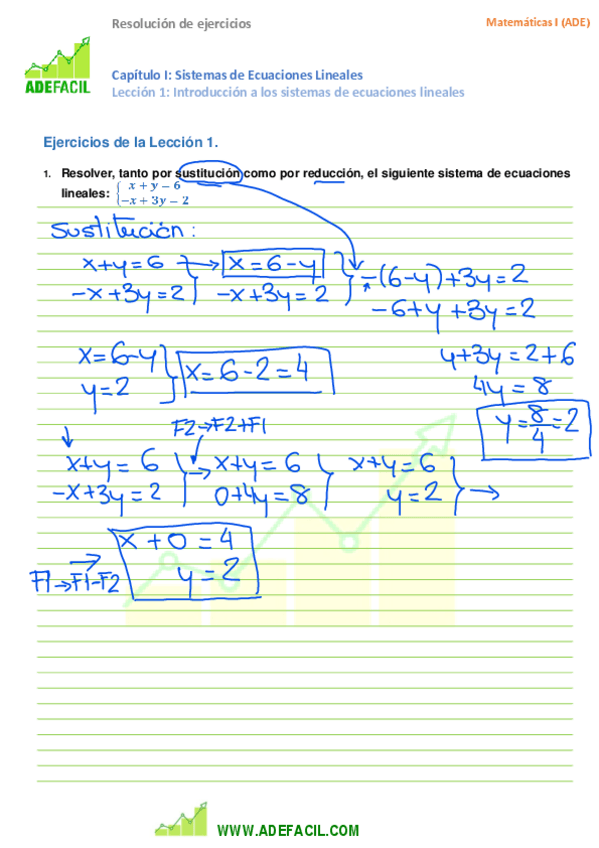 Resolución de ejercicios
Matemáticas I (ADE)
ADEFACIL
Capítulo I: Sistemas de Ecuaciones Lineales
Lección 1: Introducción a los sistemas de ecuaciones lineales
Ejercicios de la Lección 1.
1. Resolver, tanto por sustitución como por reducción, el siguiente sistema de ecuaciones
lineales: { x + y = 6
−x + 3y = 2
Sustitución:
x+y=6 → x=6-y -(6-y)+3y=2
-x+3y=2 } -x+3y=2 } -6+y+3y=2
x=6-y y+3y=2+6
y=2 } x=6-2=4 4y=8
y=8/4=2
F2→F2+F1
x+y=6 } → x+y=6 } x+y=6 } →
-x+3y=2 0+4y=8 y=2
x+0=4
F1→F1-F2 y=2
WWW.ADEFACIL.COM